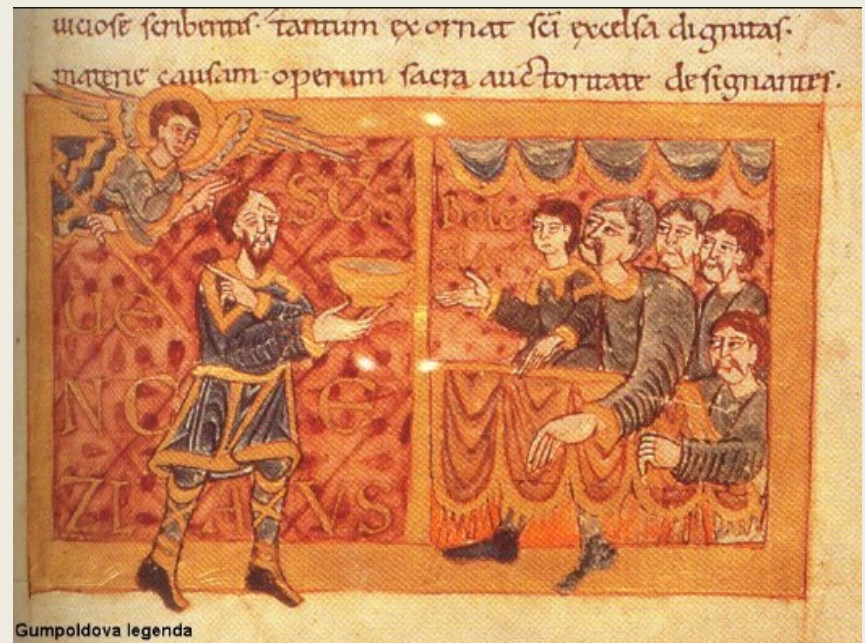 uiciose scribentis. tantum exornat sci excelsa dignitas.
materie causam operum sacra auctoritate designantes.
SCS
UE
NC E
ZL A VS
Gumpoldova legenda